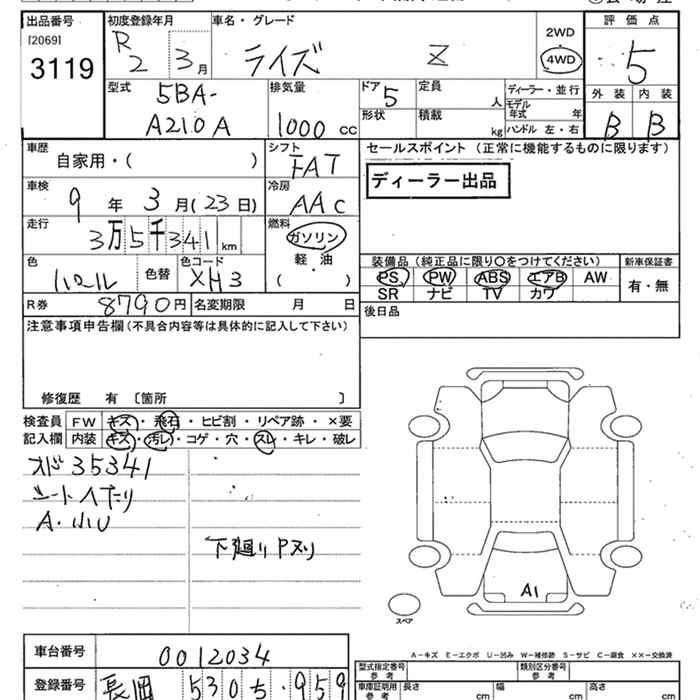 出品番号 初度登録年月 車名・グレード 評価点
[2069]
3119
R2 3月 ライズ Z 2WD
4WD
5
型式 5BA-
A210A
排気量 1000 cc
ドア 5 定員 人
形状 積載 kg
ディーラー・並行
モデル年式 年
ハンドル 左・右
外装 内装
B B
車歴 自家用・( )
シフト FAT
セールスポイント (正常に機能するものに限ります)
ディーラー出品
車検 9年 3月 (23日)
冷房 AAC
走行 3万5千341km
燃料 ガソリン
軽油
( )
色 色替 色コード XH3
装備品 (純正品に限り○をつけてください) 新車保証書
PS PW ABS エアB AW 有・無
SR ナビ TV カワ
R券 8790円 名変期限 月 日
後日品
注意事項申告欄 (不具合内容等は具体的に記入して下さい)
修復歴 有 〔箇所 〕
検査員 FW キズ・飛石・ヒビ割・リペア跡・×要
記入欄 内装 キズ・汚レ・コゲ・穴・スレ・キレ・破レ
35341
シートヘたり
下廻りPヌリ
A1
スペア
車台番号 0012034
A-キズ E-エクボ U-凹み W-補修跡 S-サビ C-腐食 ××-交換済
登録番号 長岡 530 ち・959
型式指定番号 参考 類別区分番号 参考
車庫証明用 参考 長さ cm 幅 cm 高さ cm